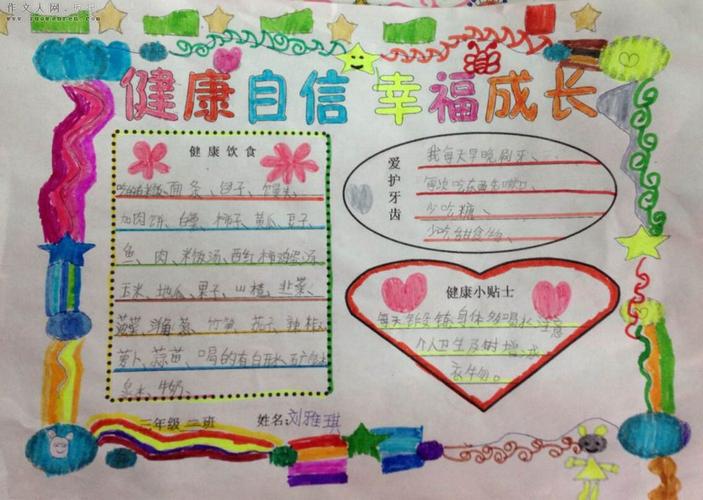 作文人网
www.zuowenren.com
健康自信 幸福成长
健康饮食
面条、包子、馒头、
肉饼、白菜、柿子、黄瓜、豆子、
鱼、肉、米饭汤、西红柿鸡蛋汤
玉米、地瓜、果子、山楂、韭菜、
菠菜、竹笋、茄子、辣椒、
萝卜、蒜苗、喝的有白开水、
牛奶、
爱护牙齿
我每天早晚刷牙、
每次吃东西先漱口、
少吃糖、
少吃甜食物、
健康小贴士
每天多锻炼身体多喝水注意
个人卫生及时增减
衣物。
三年级二班 姓名:刘雅琪